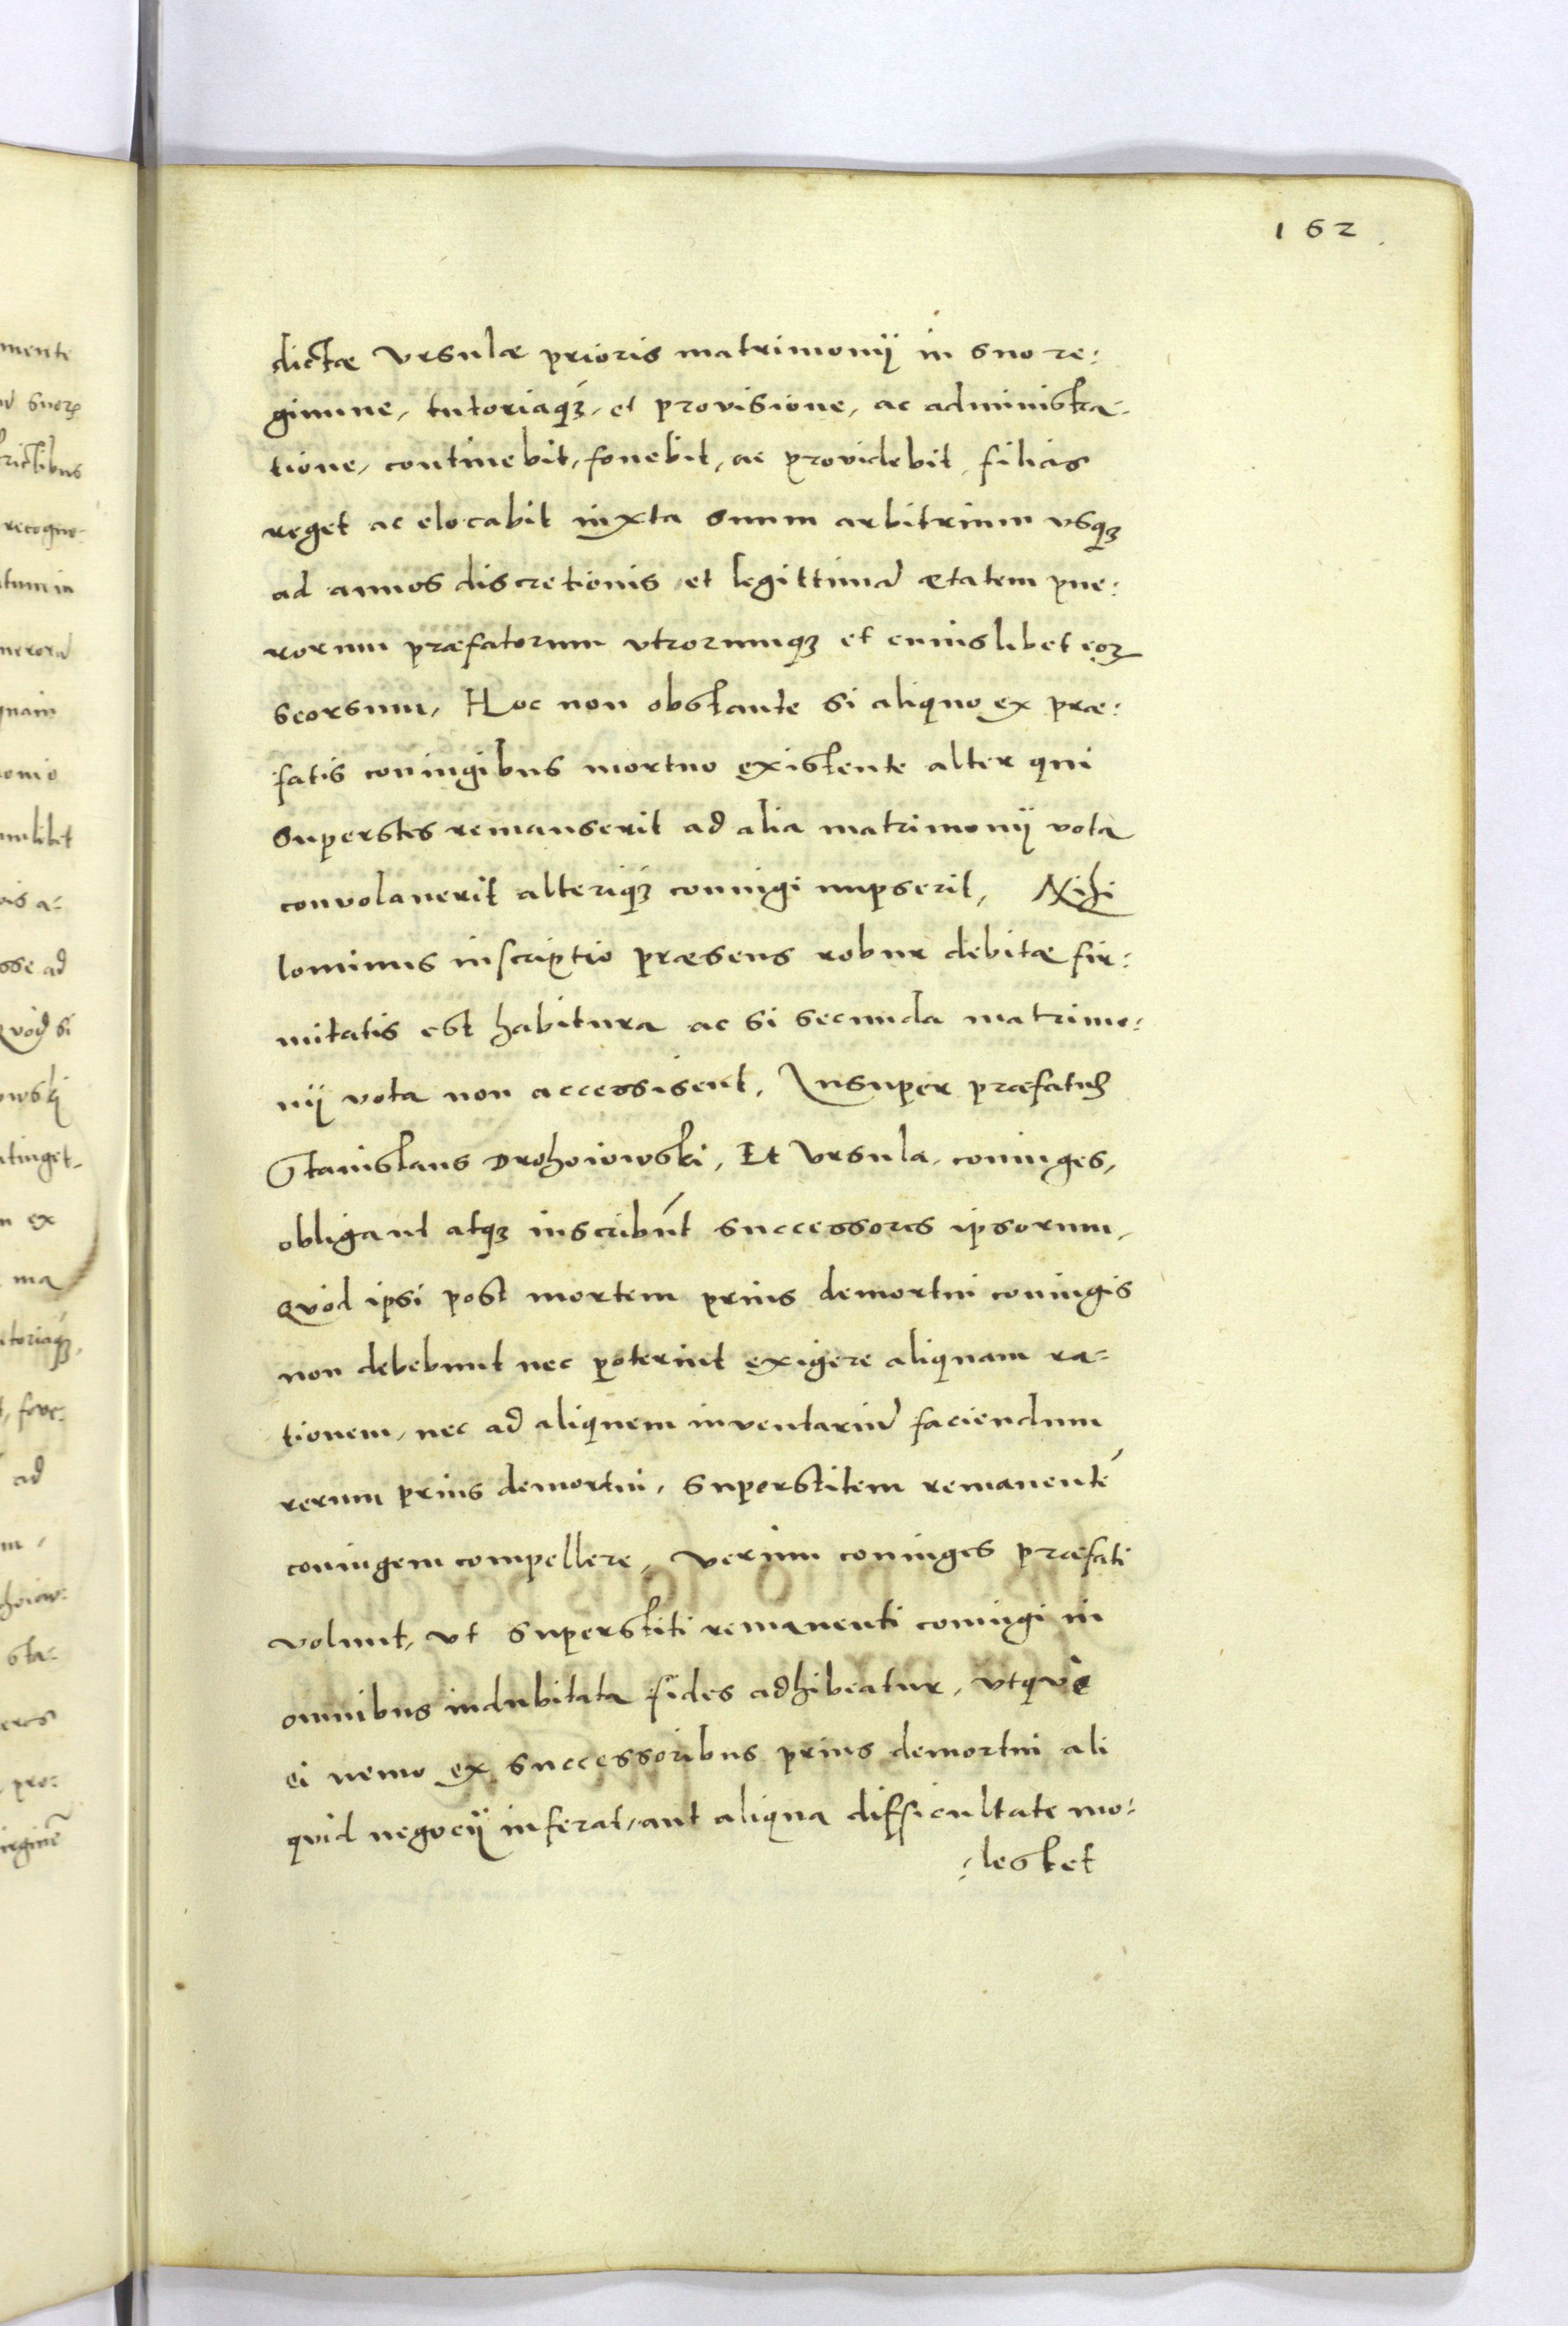 162
dictæ Vrsulæ prioris matrimonij in suo re:
gimine, tutoriaq́ꝫ, et provisione, ac administra-
tione, continebit, fouebit, ac providebit, filias
reget ac elocabit iuxta suum arbitrium vsqꝫ
ad annos discretionis, et legittimã ætatem pue:
rorum præfatorum vtrorumqꝫ et cuiuslibet eoꝝ
seorsum, Hoc non obstante si aliquo ex præ:
fatis coniugibus mortuo existente alter qui
superstes remanserit ad alia matrimonij vota
convolauerit alteriq́ꝫ coniugi nupserit, Nihi
lominus inscriptio præsens robur debitæ fir:
mitatis est habitura ac si secunda matrimo:
nij vota non accessisent, Insuper præfatus
Stanislaus Drohoiowski, Et Vrsula, coniuges,
obligant atqꝫ inscribũt successores ipsorum,
Quod ipsi post mortem prius demortui coniugis
non debebunt nec poterint exigere aliquam ra-
tionem, nec ad aliquem inventariũ faciendum
rerum prius demortui, superstitem remanentẽ
coniugem compellere, verum coniuges præfati
volunt, vt superstiti remanenti coniugi in
omnibus indubitata fides adhibeatur, vtquè
ei nemo ex successoribus prius demortui ali
quid negocij inferat, aut aliqua difficultate mo:
:lestet
mente
suoꝝ
recogno-
quam
onio
is a-
sse ad
Quod si
owski
atinget-
ex
ma
toriaqꝫ,
ad
sta-
pro: